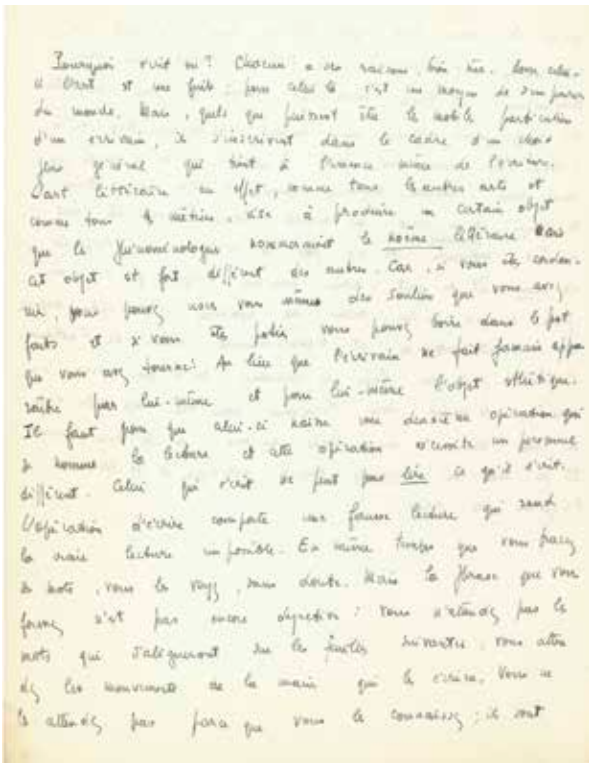 Pourquoi écrit-on ? Chacun a ses raisons, bien sûr. Pour celui-ci
l'art est une fuite ; pour celui-là c'est un moyen de s'emparer
du monde. Mais, quels que puissent être les mobiles particuliers
d'un écrivain, ils s'inscrivent dans le cadre d'un choix
plus général qui tient à l'essence même de l'écriture.
L'art littéraire en effet, comme tous les autres arts et
comme tous les métiers, vise à produire un certain objet
que le phénoménologue nommerait le noème littéraire. Mais
cet objet est fort différent des autres. Car, si vous êtes cordon-
nier, vous pouvez user vous même des souliers que vous avez
faits et si vous êtes potier vous pouvez boire dans le pot
que vous avez tourné. Au lieu que l'écrivain ne fait jamais appa-
raître par lui-même et pour lui-même l'objet esthétique.
Il faut pour que celui-ci naisse une deuxième opération qui
se nomme la lecture et cette opération nécessite un personnel
différent. Celui qui écrit ne peut pas lire ce qu'il écrit.
L'opération d'écrire comporte une fausse lecture qui rend
la vraie lecture impossible. En même temps que vous tracez
les mots, vous les voyez, sans doute. Mais la phrase que vous
formez n'est pas encore objective : vous n'attendez pas les
mots qui s'aligneront sur les feuilles suivantes, vous atten
dez les mouvements de la main qui les écrira. Vous ne
les attendez pas parce que vous les connaissez ; ils sont